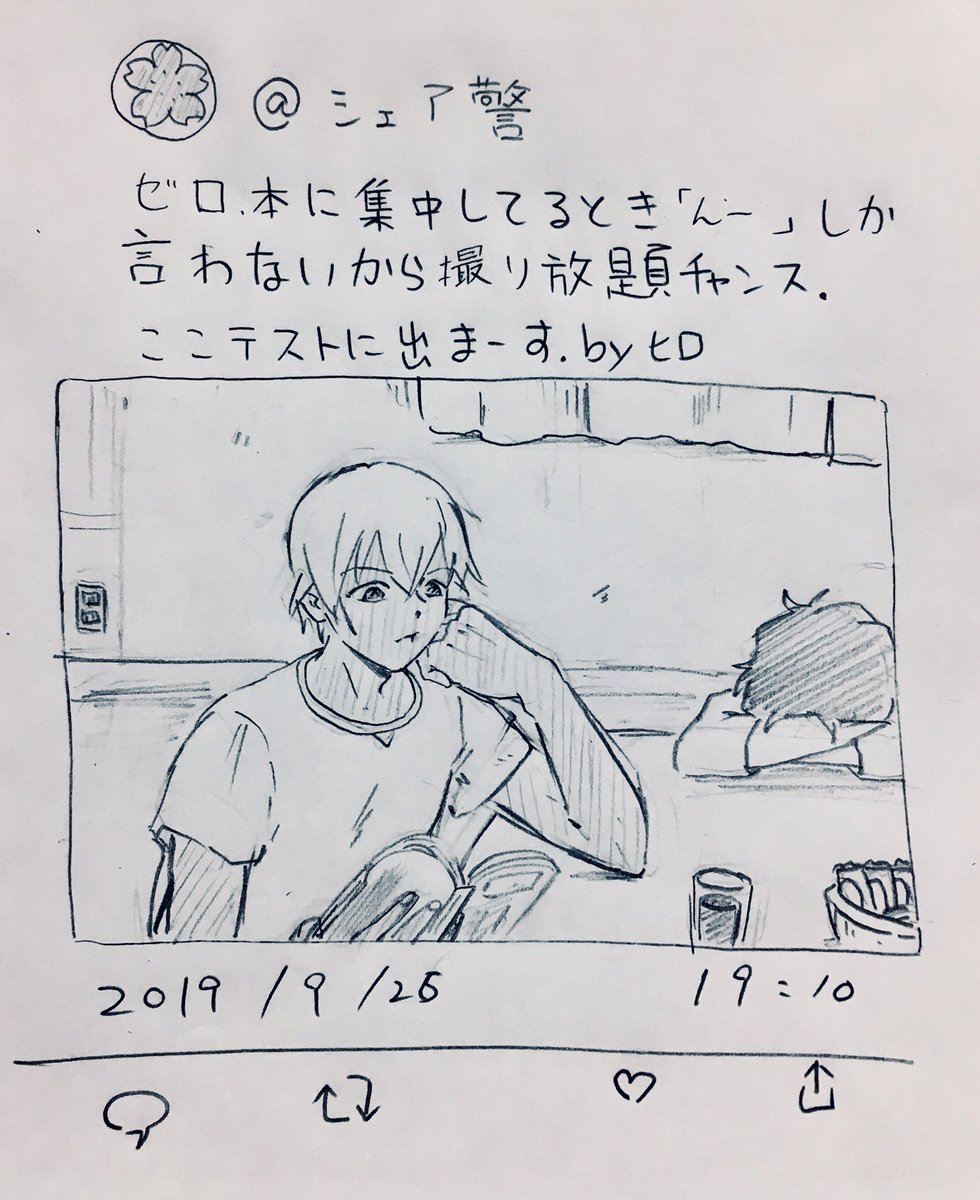 @シェア警
ゼロ、本に集中してるとき「んー」しか
言わないから撮り放題チャンス.
ここテストに出まーす.byヒロ
2019/9/25 19:10